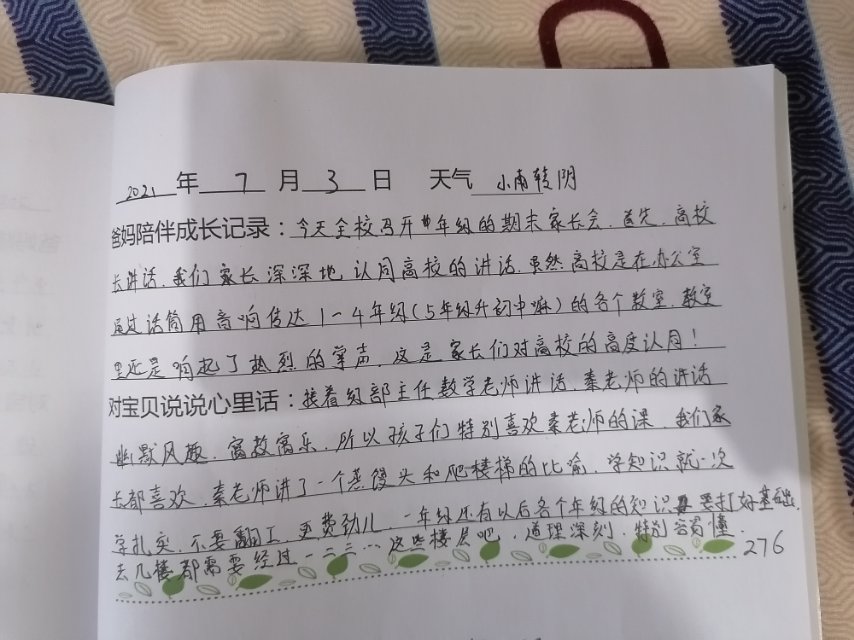 2021 年 7 月 3 日 天气 小雨转阴
爸妈陪伴成长记录：今天全校召开各年级的期末家长会。首先，高校
长讲话，我们家长深深地认同高校的讲话，虽然高校是在办公室
通过话筒用音响传达1-4年级(5年级升初中嘛)的各个教室，教室
里还是响起了热烈的掌声，这是家长们对高校的高度认同！
对宝贝说说心里话：接着级部主任数学老师讲话，秦老师的讲话
幽默风趣，寓教寓乐，所以孩子们特别喜欢秦老师的课，我们家
长都喜欢，秦老师讲了一个蒸馒头和爬楼梯的比喻，学知识就一次
学扎实，不要翻工，更费劲儿，一年级还有以后各个年级的知识要打好基础，
去几楼都需要经过一二三…这些楼层吧，道理深刻，特别容易懂。
276